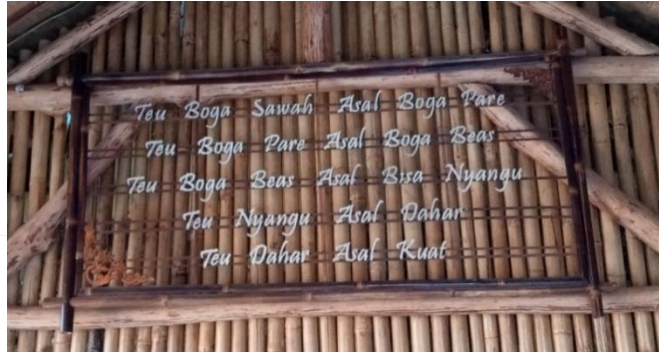 Teu Boga Sawah Asal Boga Pare
Teu Boga Pare Asal Boga Beas
Teu Boga Beas Asal Bisa Nyangu
Teu Nyangu Asal Dahar
Teu Dahar Asal Kuat